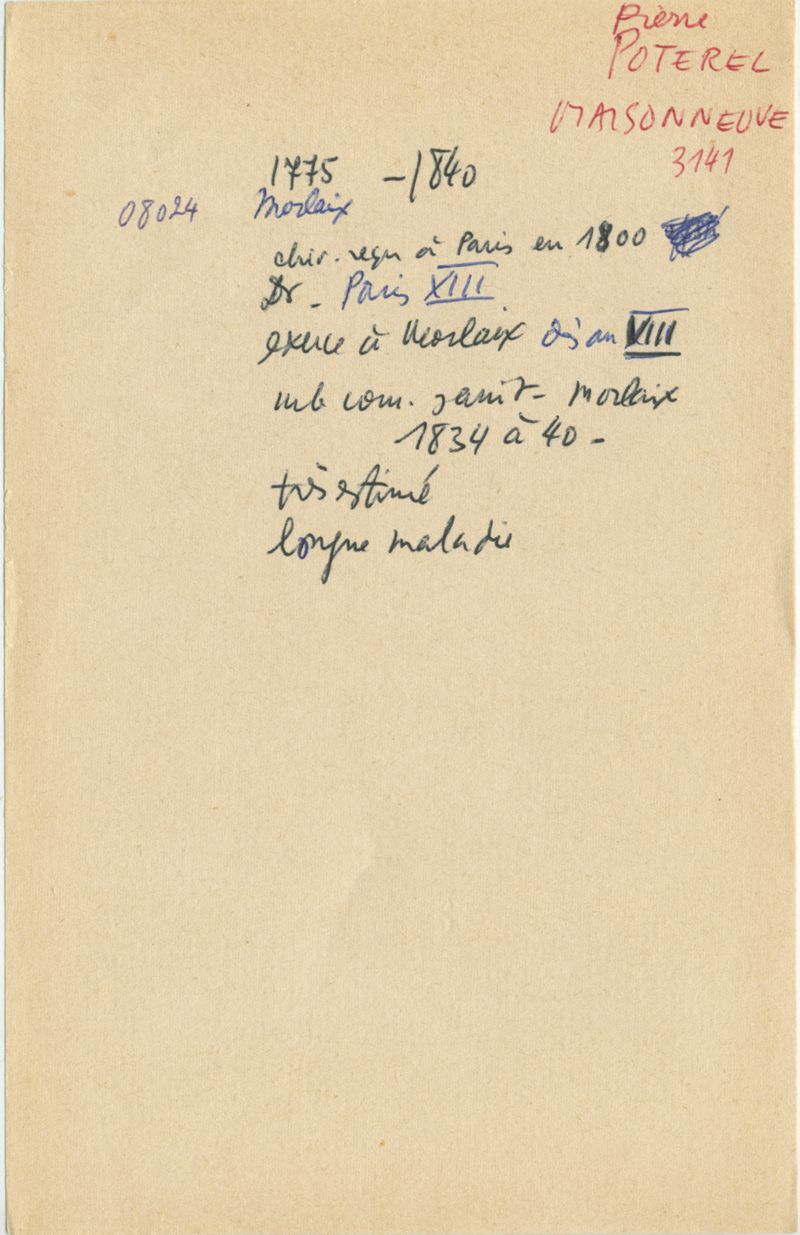 Pierre
POTEREL
MAISONNEUVE
3141
1775 - 1840
08024 Morlaix
chir. reçu à Paris en 1800
Dr - Paris XIII
exerce à Morlaix dès an VIII
mb com. sanit - Morlaix
1834 à 40 -
très estimé
longue maladie